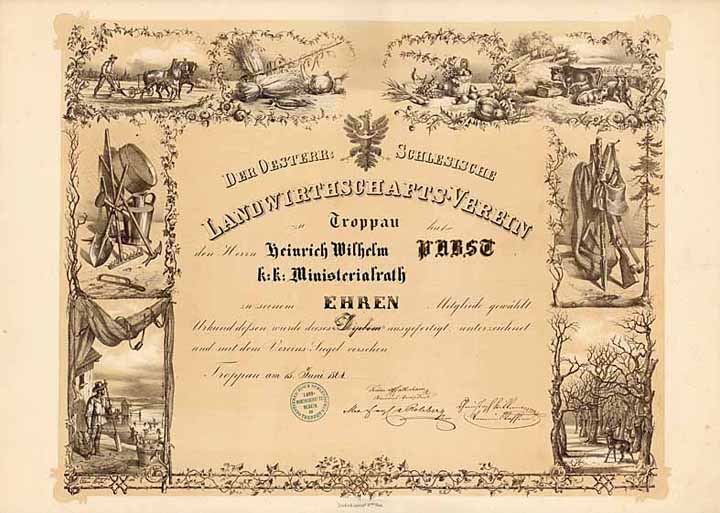 DER OESTERR: SCHLESISCHE
LANDWIRTHSCHAFTS-VEREIN
zu Troppau hat
den Herrn Heinrich Wilhelm PABST
k: k: Ministerialrath
zu seinem EHREN Mitgliede gewählt
Urkund dessen wurde dieses Diplom ausgefertigt, unterzeichnet
und mit dem Vereins-Siegel versehen
Troppau am 15. Juni
LAND-
WIRTHSCHAFTS
VEREIN